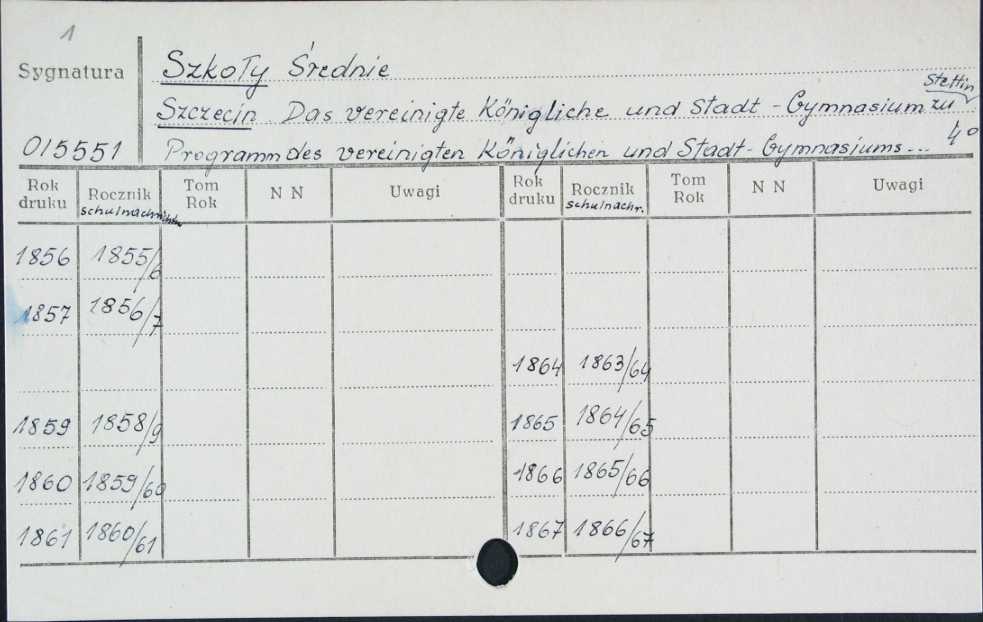 1
Sygnatura
Szkoły Średnie
Stettin
Szczecin Das vereinigte Königliche und Stadt-Gymnasium zu
015551
Programm des vereinigten Königlichen und Stadt-Gymnasiums... 4°
Rok druku Rocznik Schulnachrichten Tom Rok N N Uwagi Rok druku Rocznik Schulnachr. Tom Rok N N Uwagi
1856 1855/6
1857 1856/7
1864 1863/64
1859 1858/9 1865 1864/65
1860 1859/60 1866 1865/66
1861 1860/61 1867 1866/67